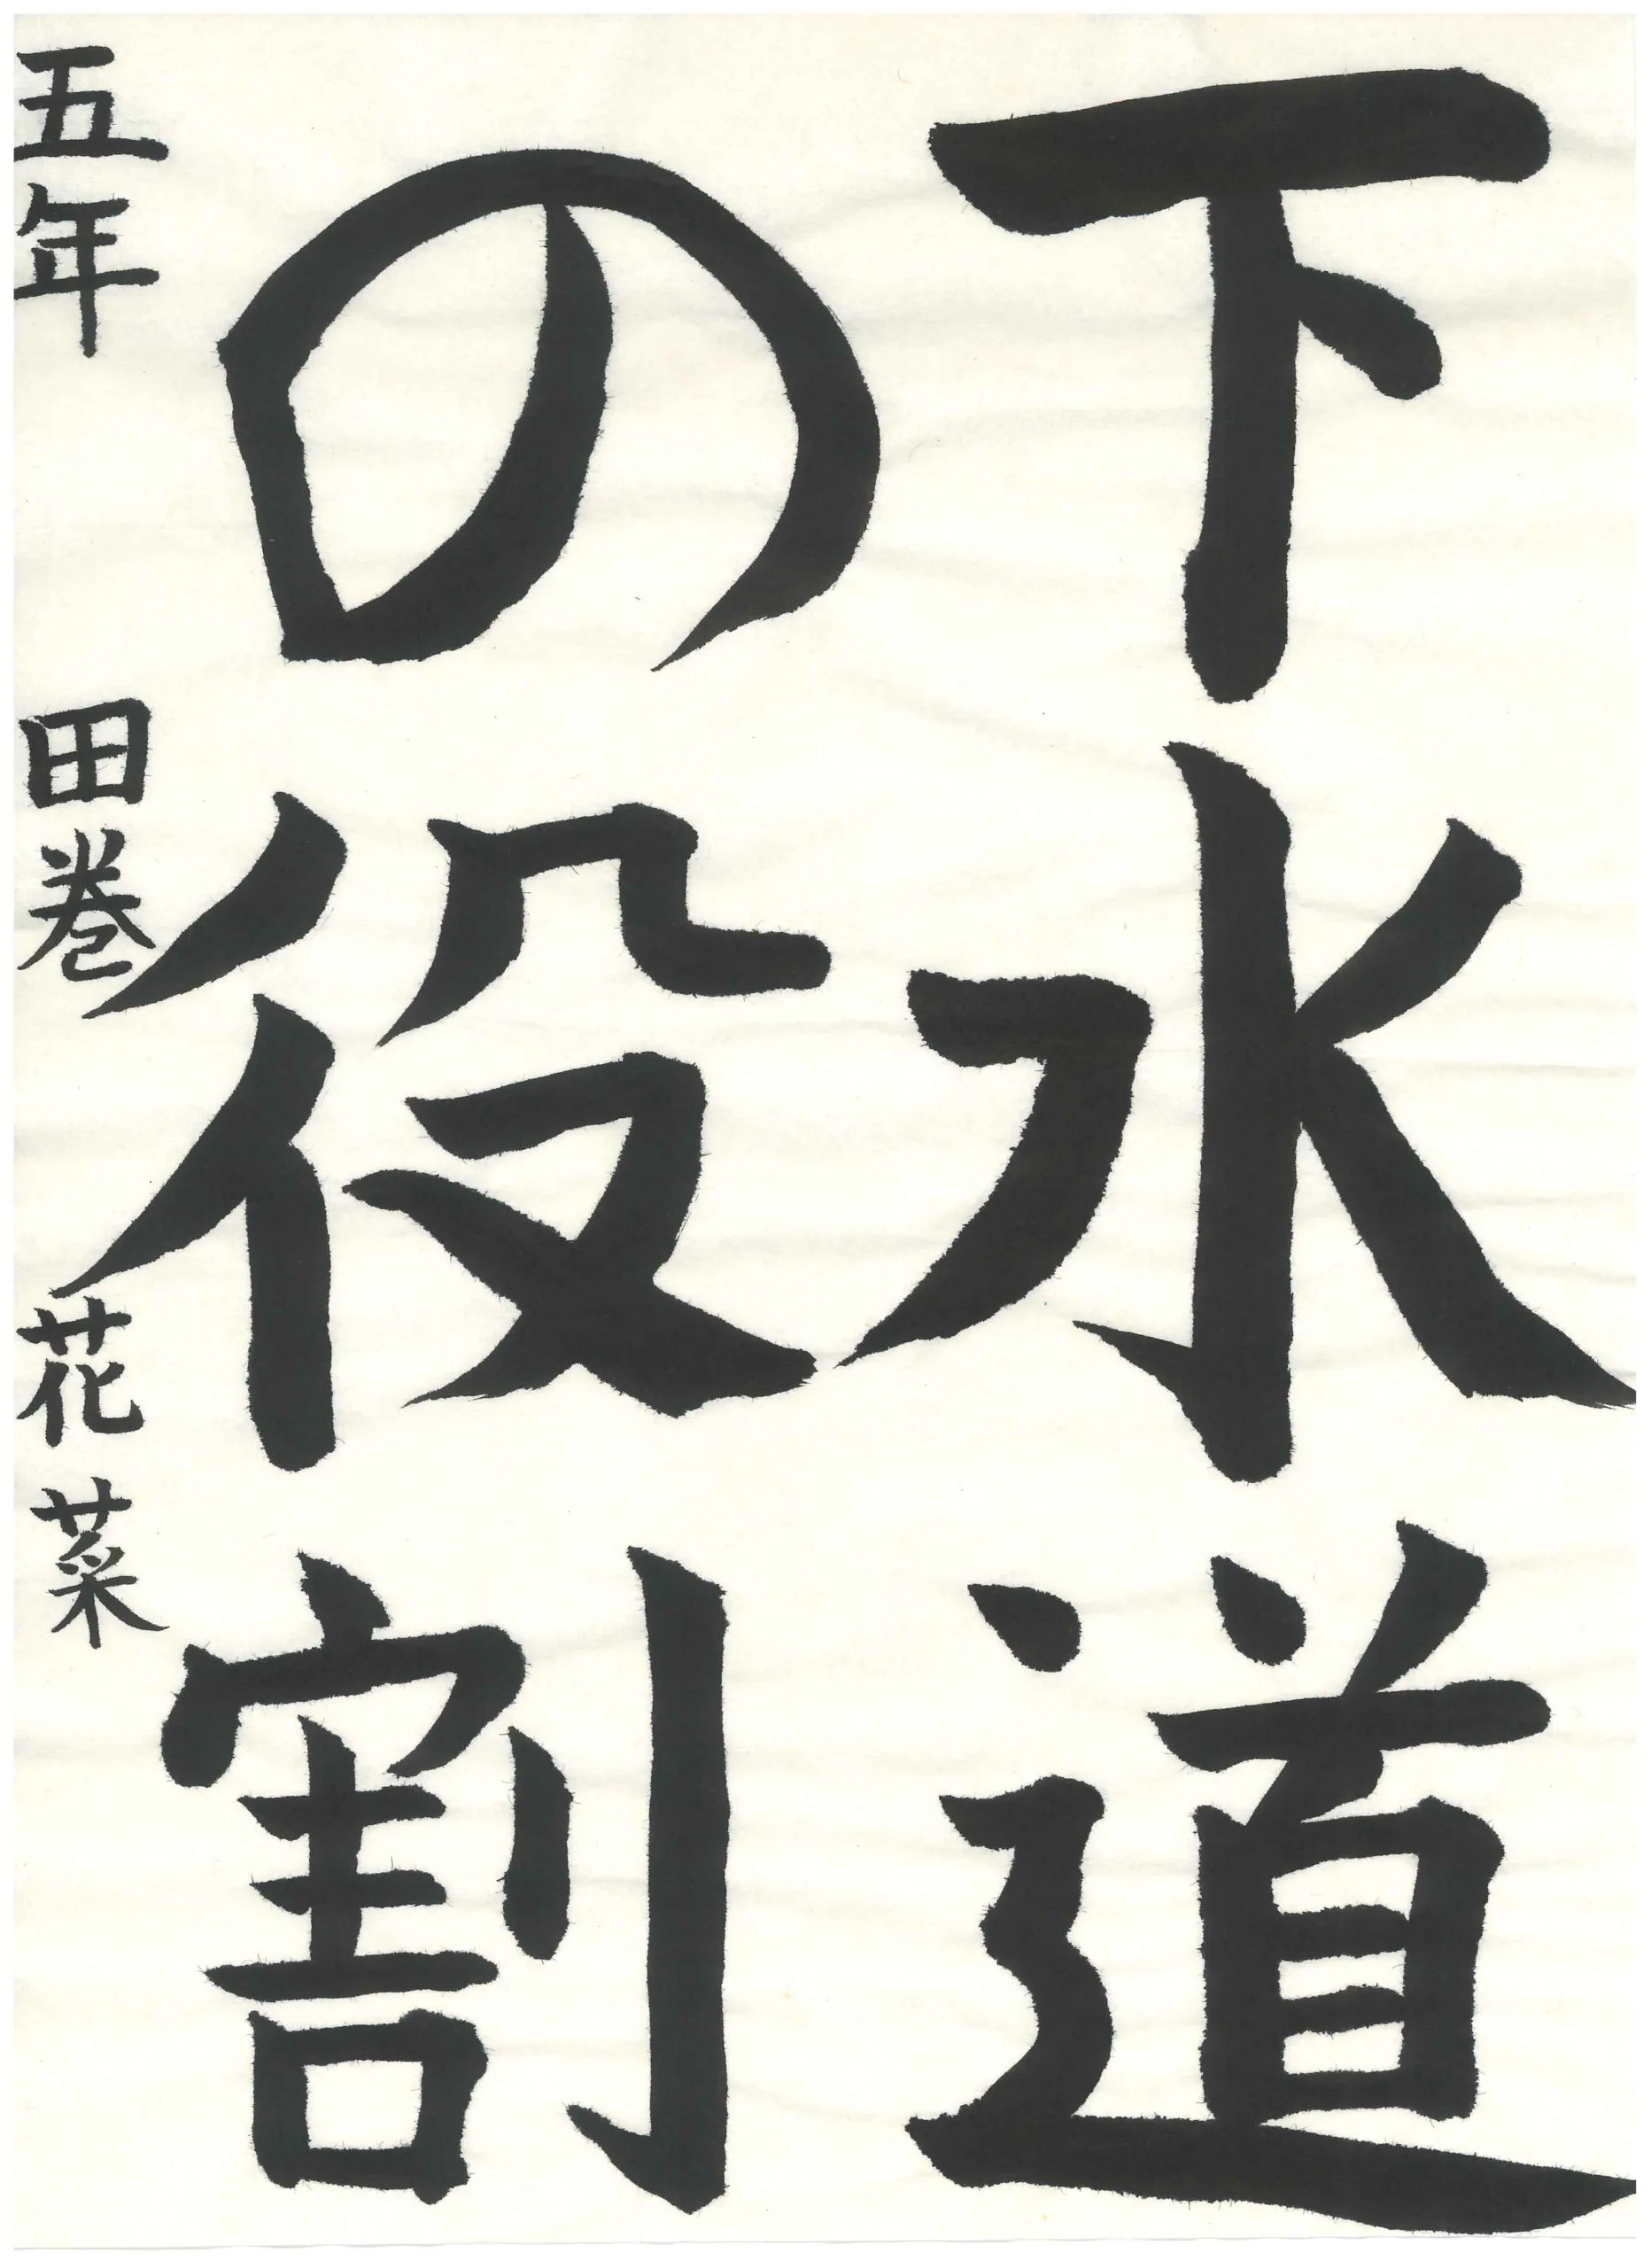 下水道
の役割
五年 田巻花菜